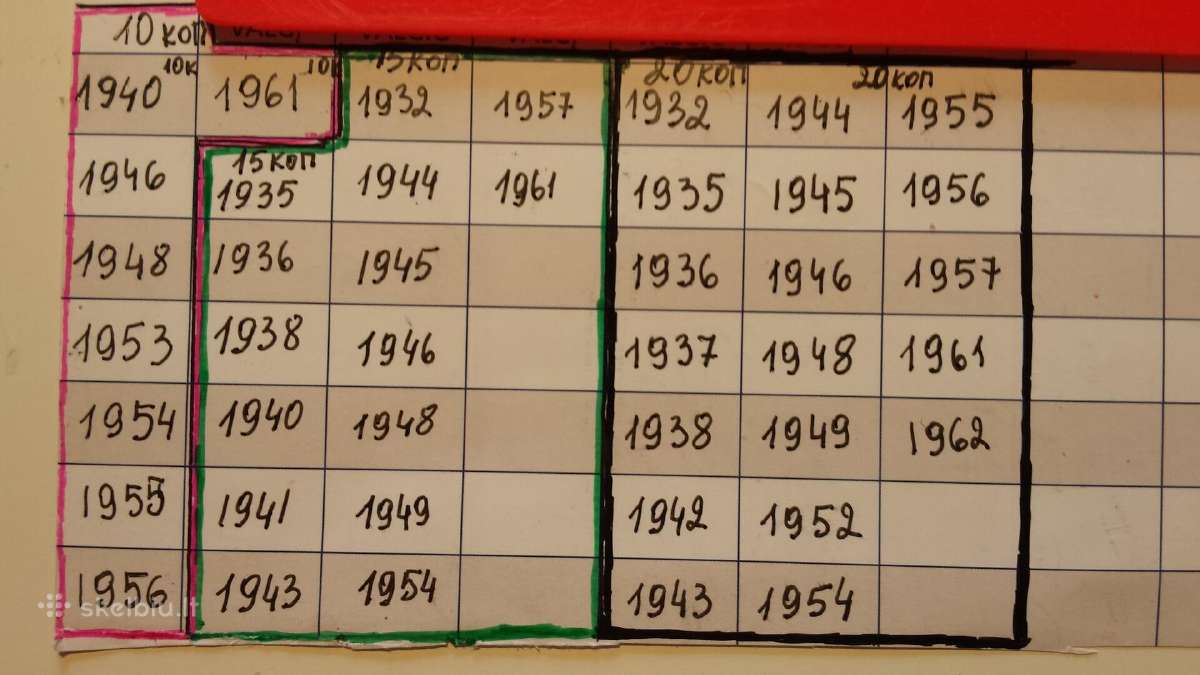 10 коп
15 коп
20 коп
20 коп
10к
10к
1940 1961 1932 1957 1932 1944 1955
15 коп
1946 1935 1944 1961 1935 1945 1956
1948 1936 1945 1936 1946 1957
1953 1938 1946 1937 1948 1961
1954 1940 1948 1938 1949 1962
1955 1941 1949 1942 1952
1956 1943 1954 1943 1954
skelbiu.lt